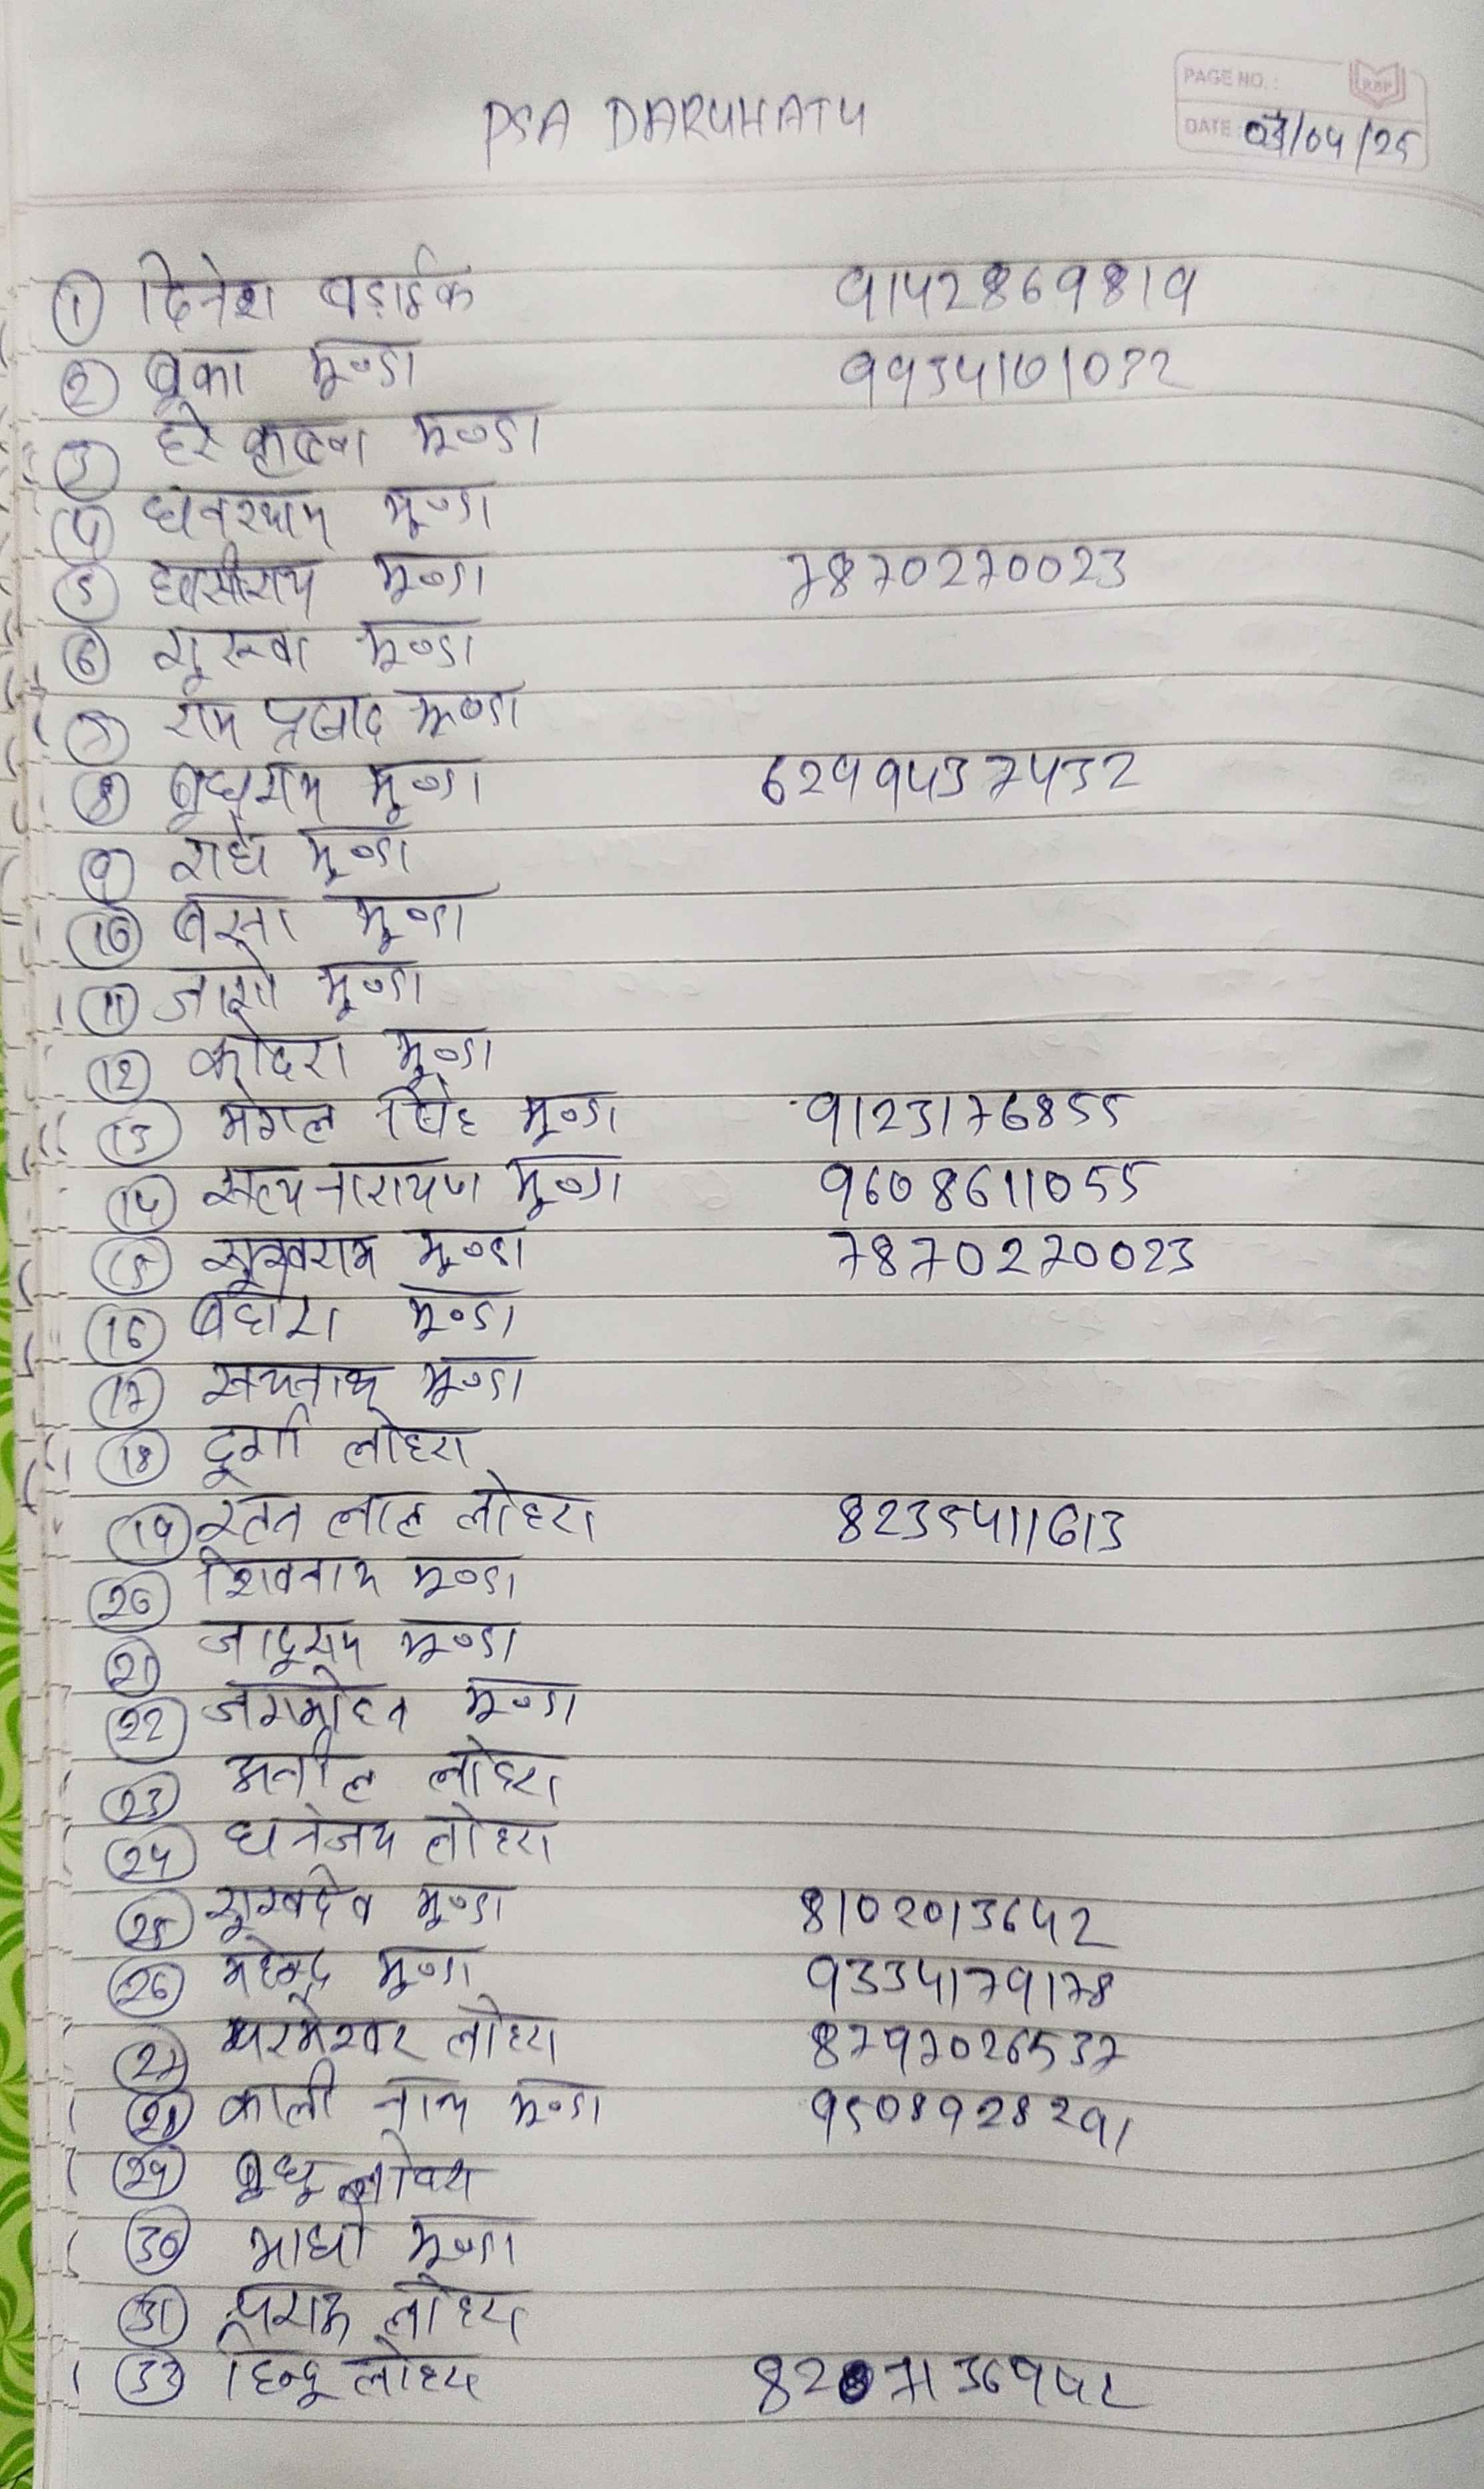 PAGE NO.:
PSA DARUHATU
DATE: 07/04/25
① दिनेश बड़ाईक 9142869819
② बुका मुण्डा 9934101032
③ हरे कृष्णा मुण्डा
④ घनश्याम मुण्डा
⑤ मुण्डा 7870270023
⑥ मुण्डा
⑦ राम प्रसाद मुण्डा
⑧ बुधराम मुण्डा 6299437432
⑨ राधे मुण्डा
⑩ मुण्डा
⑪ मुण्डा
⑫ मुण्डा
⑬ मंगल सिंह मुण्डा 9123176855
⑭ सत्यनारायण मुण्डा 9608611055
⑮ सुखराम मुण्डा 7870270023
⑯ मुण्डा
⑰ मुण्डा
⑱ दुर्गा लोहरा
⑲ रतन लाल लोहरा 8235411613
⑳ शिवनाथ मुण्डा
㉑ मुण्डा
㉒ जगमोहन मुण्डा
㉓ अनील लोहरा
㉔ धनंजय लोहरा
㉕ सुखदेव मुण्डा 8102013642
㉖ महेन्द्र मुण्डा 9334179178
㉗ परमेश्वर लोहरा 8797026537
㉘ काली नाथ मुण्डा 9508928291
㉙ बुधु
㉚ माधो मुण्डा
㉛ लोहरा
㉝ हिन्दू लोहरा